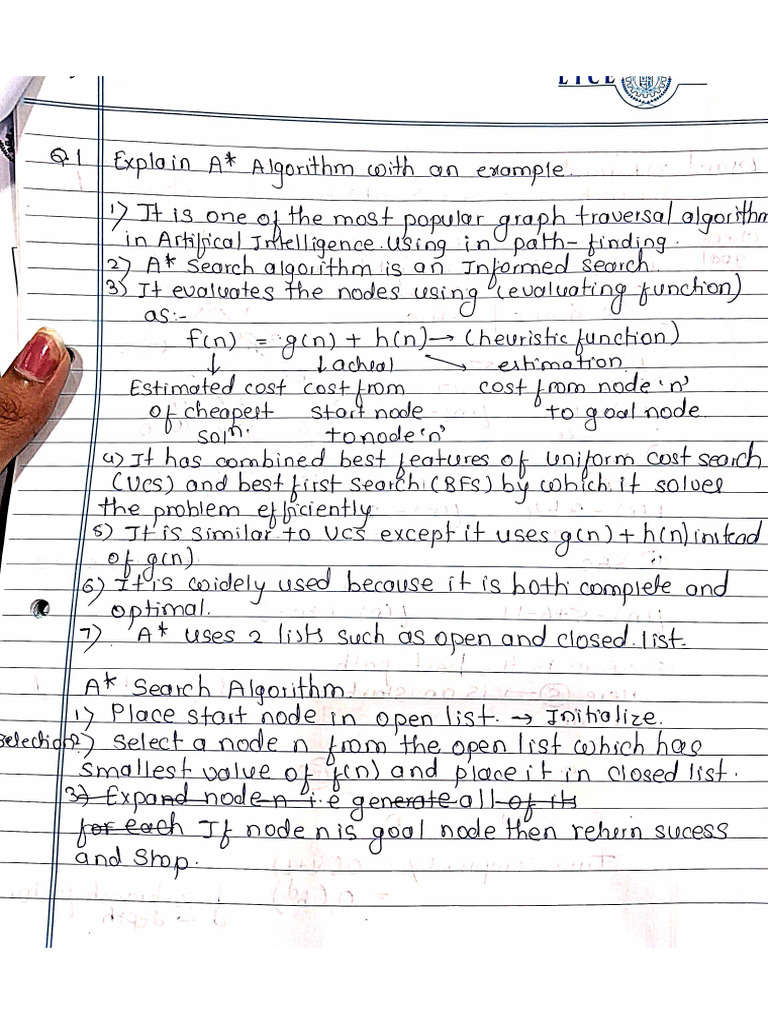 LTCE
Q.1 Explain A* Algorithm with an example.
1) It is one of the most popular graph traversal algorithm
in Artifical Intelligence using in path-finding.
2) A* Search algorithm is an Informed search.
3) It evaluates the nodes using (evaluating function)
as:-
f(n) = g(n) + h(n) → (heuristic function)
↓ ↓ acheal → estimation
Estimated cost cost from cost from node 'n'
of cheapest start node to goal node.
soln. to node 'n'
4) It has combined best features of uniform cost search
(UCS) and best first search (BFS) by which it solves
the problem efficiently
5) It is similar to UCS except it uses g(n) + h(n) instead
of g(n)
6) It is widely used because it is both complete and
optimal.
7) A* uses 2 lists such as open and closed list.
A* Search Algorithm.
1) Place start node in open list. → Initialize.
selection 2) Select a node n from the open list which has
smallest value of f(n) and place it in closed list.
3) Expand node n i.e generate all of its
for each If node n is goal node then rehern sucess
and stop.